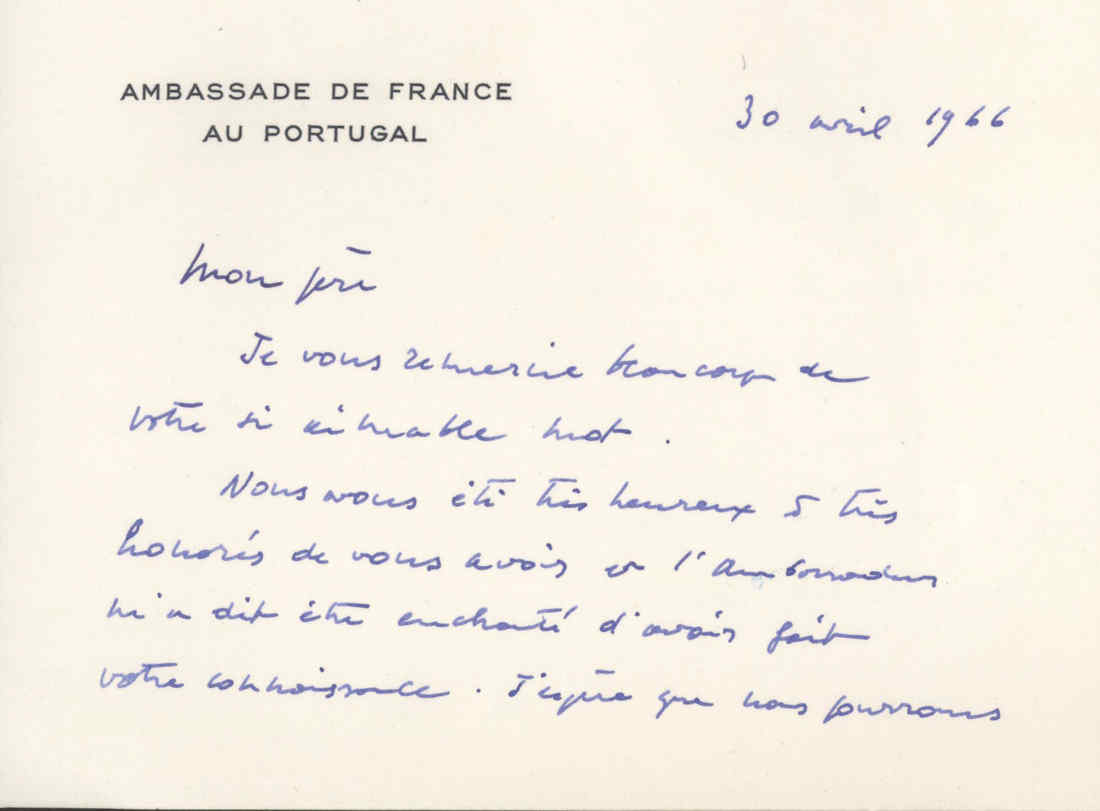 AMBASSADE DE FRANCE
AU PORTUGAL
30 avril 1966
Mon père
Je vous remercie beaucoup de
votre si aimable mot.
Nous avons été très heureux & très
honorés de vous avoir et l'Ambassadeur
m'a dit être enchanté d'avoir fait
votre connaissance. J'espère que nous pourrons